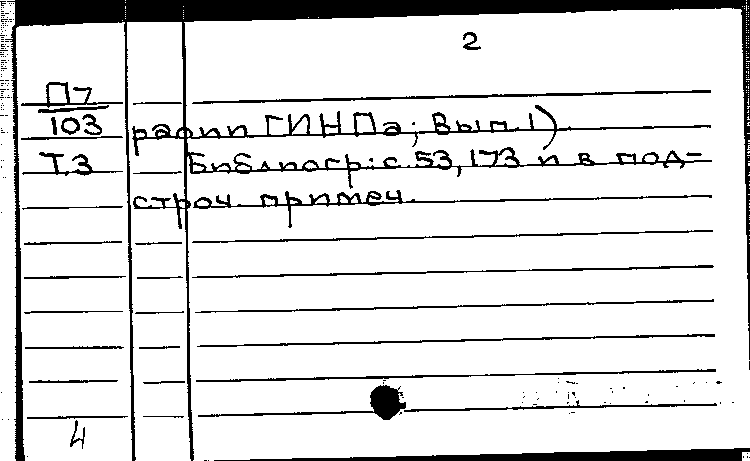 2
П7
103 рафии ГИНПа; Вып. 1)
Т.3 Библиогр.: с. 53, 173 и в под-
строч. примеч.
4